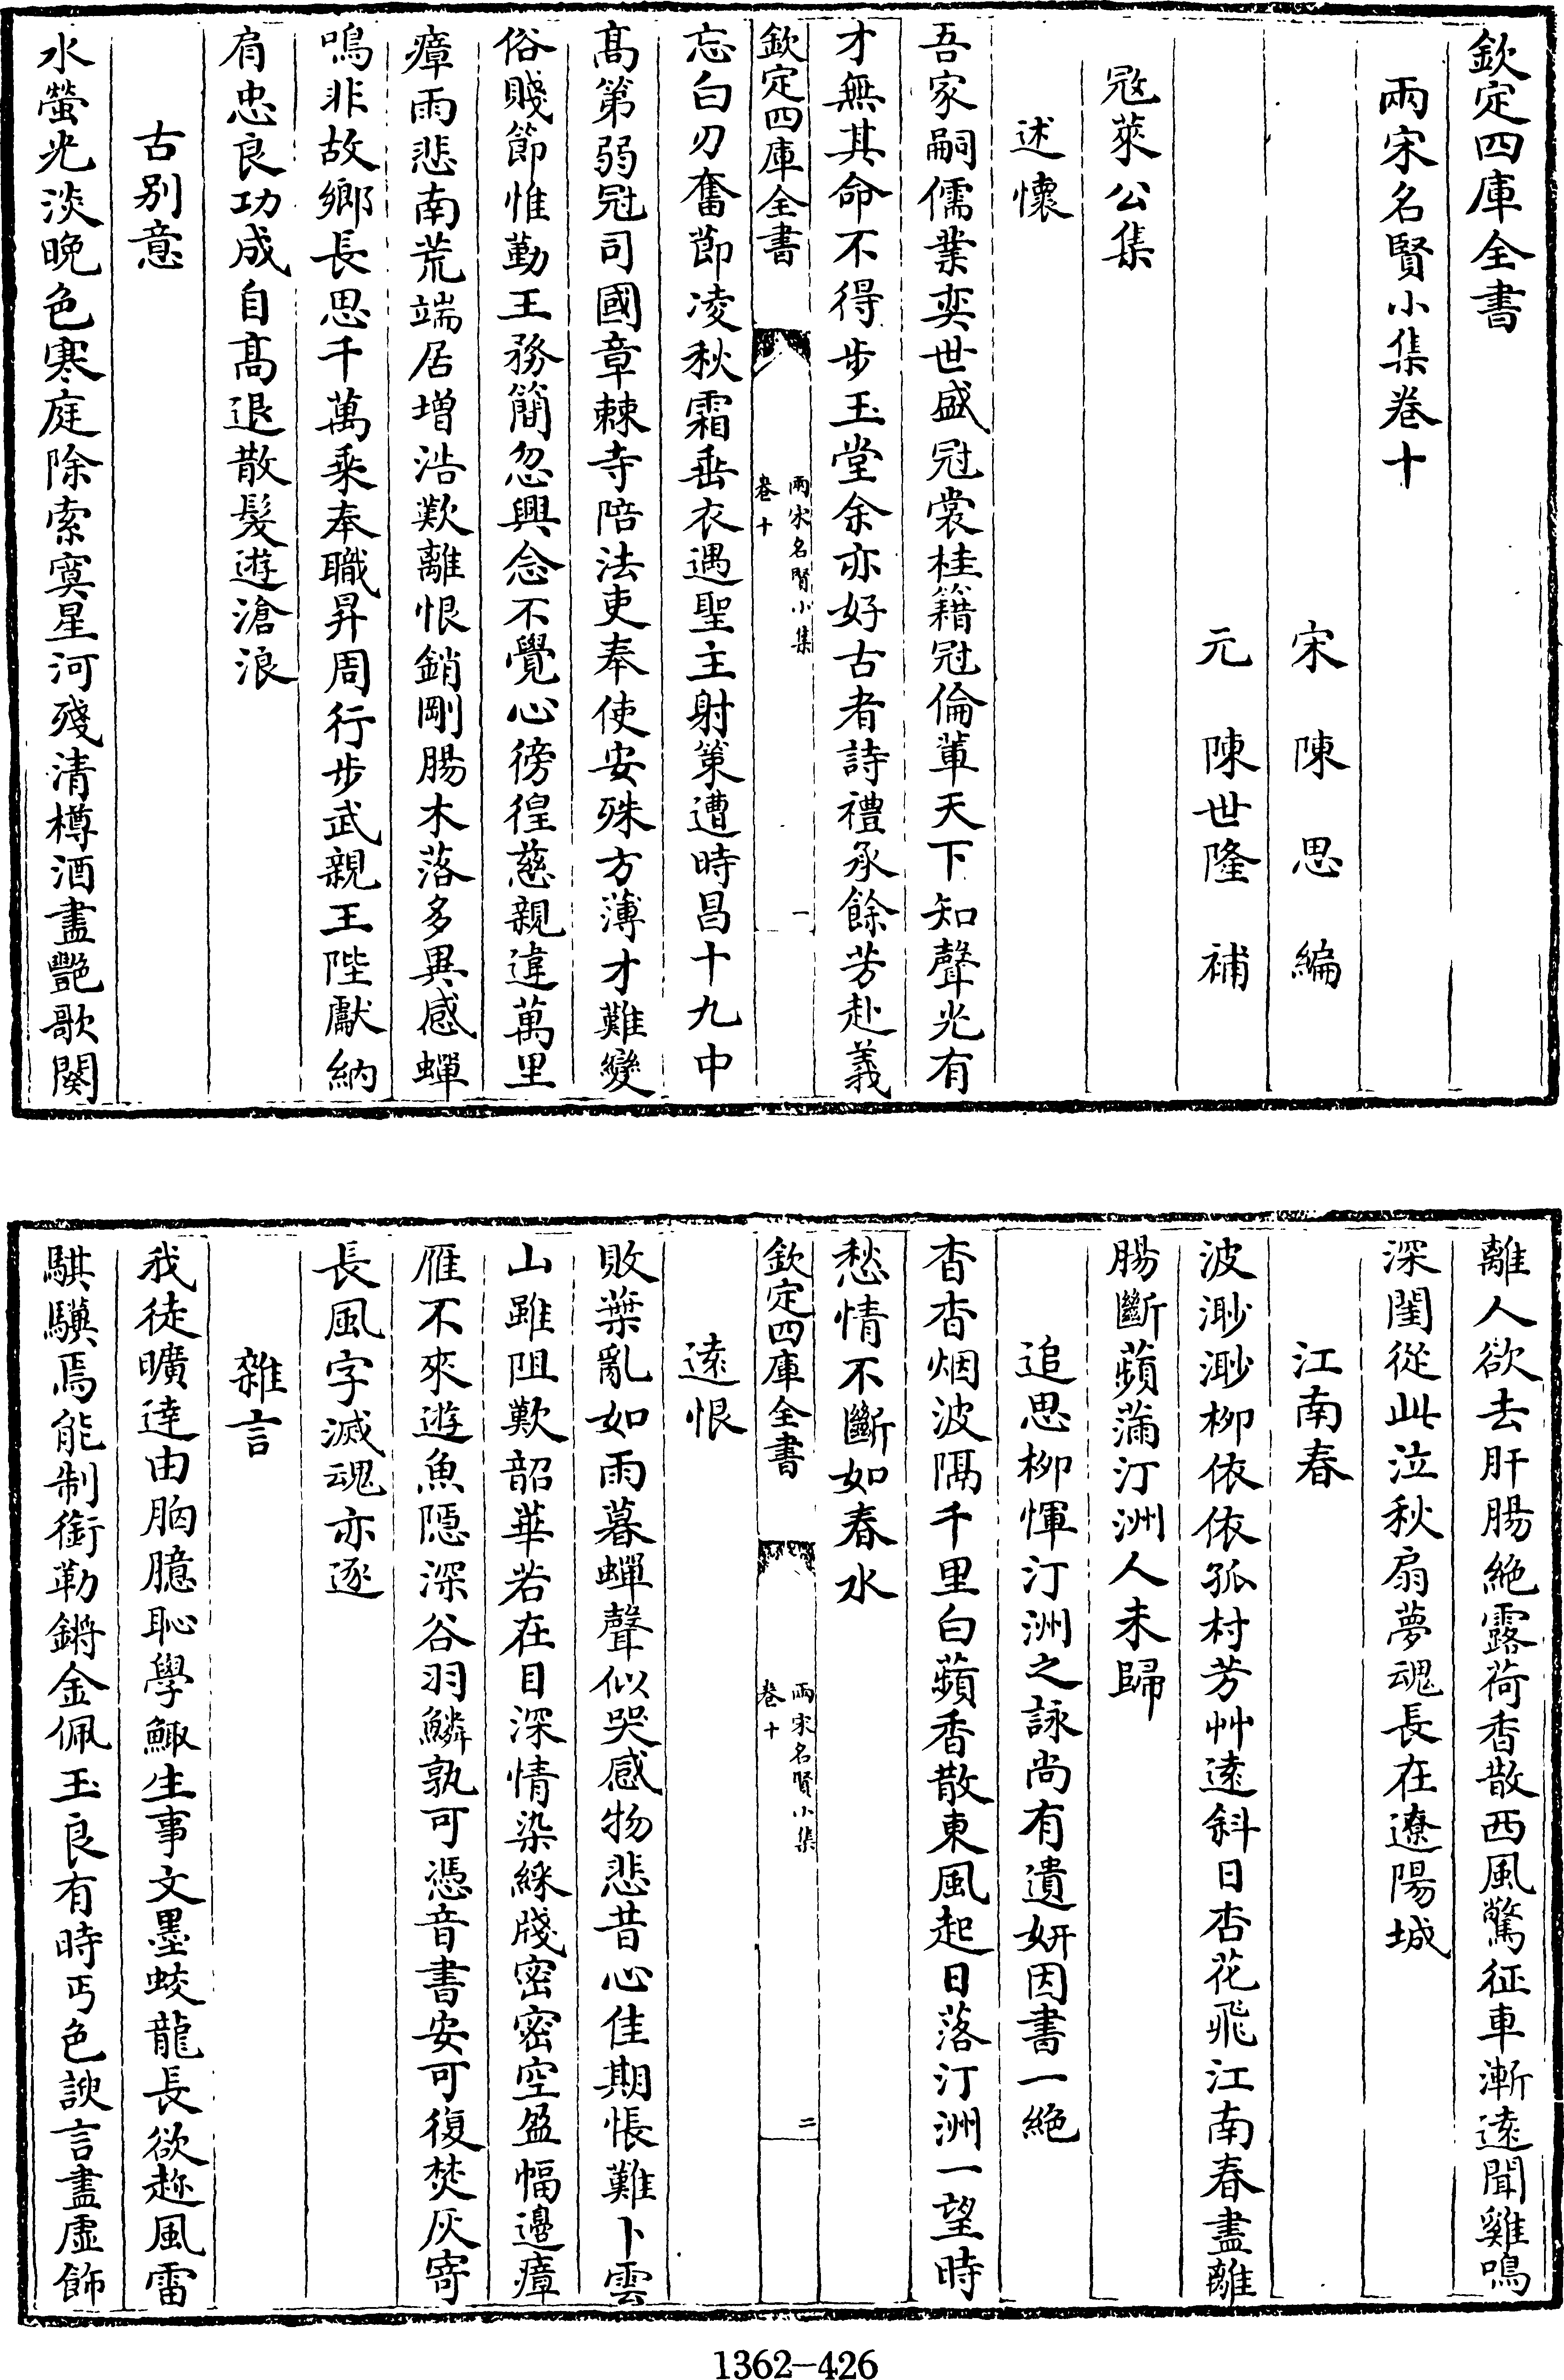 欽定四庫全書
兩宋名賢小集卷十
宋陳思編
元陳世隆補
寇萊公集
述懷
吾家嗣儒業奕世盛冠裳桂籍冠倫軰天下知聲光有
才無其命不得步玉堂余亦好古者詩禮承餘芳赴義
欽定四庫全書
兩宋名賢小集
卷十
一
忘白刃奮節凌秋霜垂衣遇聖主射策遭時昌十九中
髙第弱冠司國章棘寺陪法吏奉使安殊方薄才難變
俗賤節惟勤王務簡忽興念不覺心徬徨慈親違萬里
瘴雨悲南荒端居增浩歎離恨銷剛腸木落多異感蟬
鳴非故鄉長思千萬乘奉職昇周行步武親王陛獻納
肩忠良功成自髙退散髮遊滄浪
古别意
水螢光淡晚色寒庭除索寞星河殘清樽酒盡艷歌闋
離人欲去肝腸絶露荷香散西風驚征車漸逺聞雞鳴
深閨從此泣秋扇夢魂長在遼陽城
江南春
波渺渺柳依依孤村芳艸逺斜日杏花飛江南春盡離
腸斷蘋蒲汀洲人未歸
追思柳惲汀洲之詠尚有遺妍因書一絶
杳杳烟波隔千里白蘋香散東風起日落汀洲一望時
愁情不斷如春水
欽定四庫全書
兩宋名賢小集
卷十
二
逺恨
敗葉亂如雨暮蟬聲似哭感物悲昔心佳期悵難卜雲
山雖阻歎韶華若在目深情染綵牋密密空盈幅邊瘴
雁不來遊魚隱深谷羽鱗孰可憑音書安可復焚灰寄
長風字滅魂亦逐
雜言
我徒曠逹由胸臆恥學鯫生事文墨蛟龍長欲趂風雷
騏驥焉能制銜勒鏘金佩玉良有時丐色諛言盡虛飾
1362-426